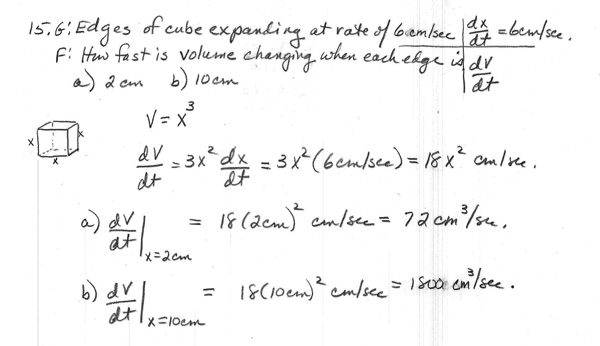 15. G: Edges of cube expanding at rate of 6 cm/sec | dx/dt = 6cm/sec.
F: How fast is volume changing when each edge is | dV/dt
a) 2 cm b) 10 cm
V = x³
x x x
dV/dt = 3x² dx/dt = 3x² (6cm/sec) = 18x² cm/sec.
a) dV/dt |x=2cm = 18(2cm)² cm/sec = 72 cm³/sec.
b) dV/dt |x=10cm = 18(10cm)² cm/sec = 1800 cm³/sec.